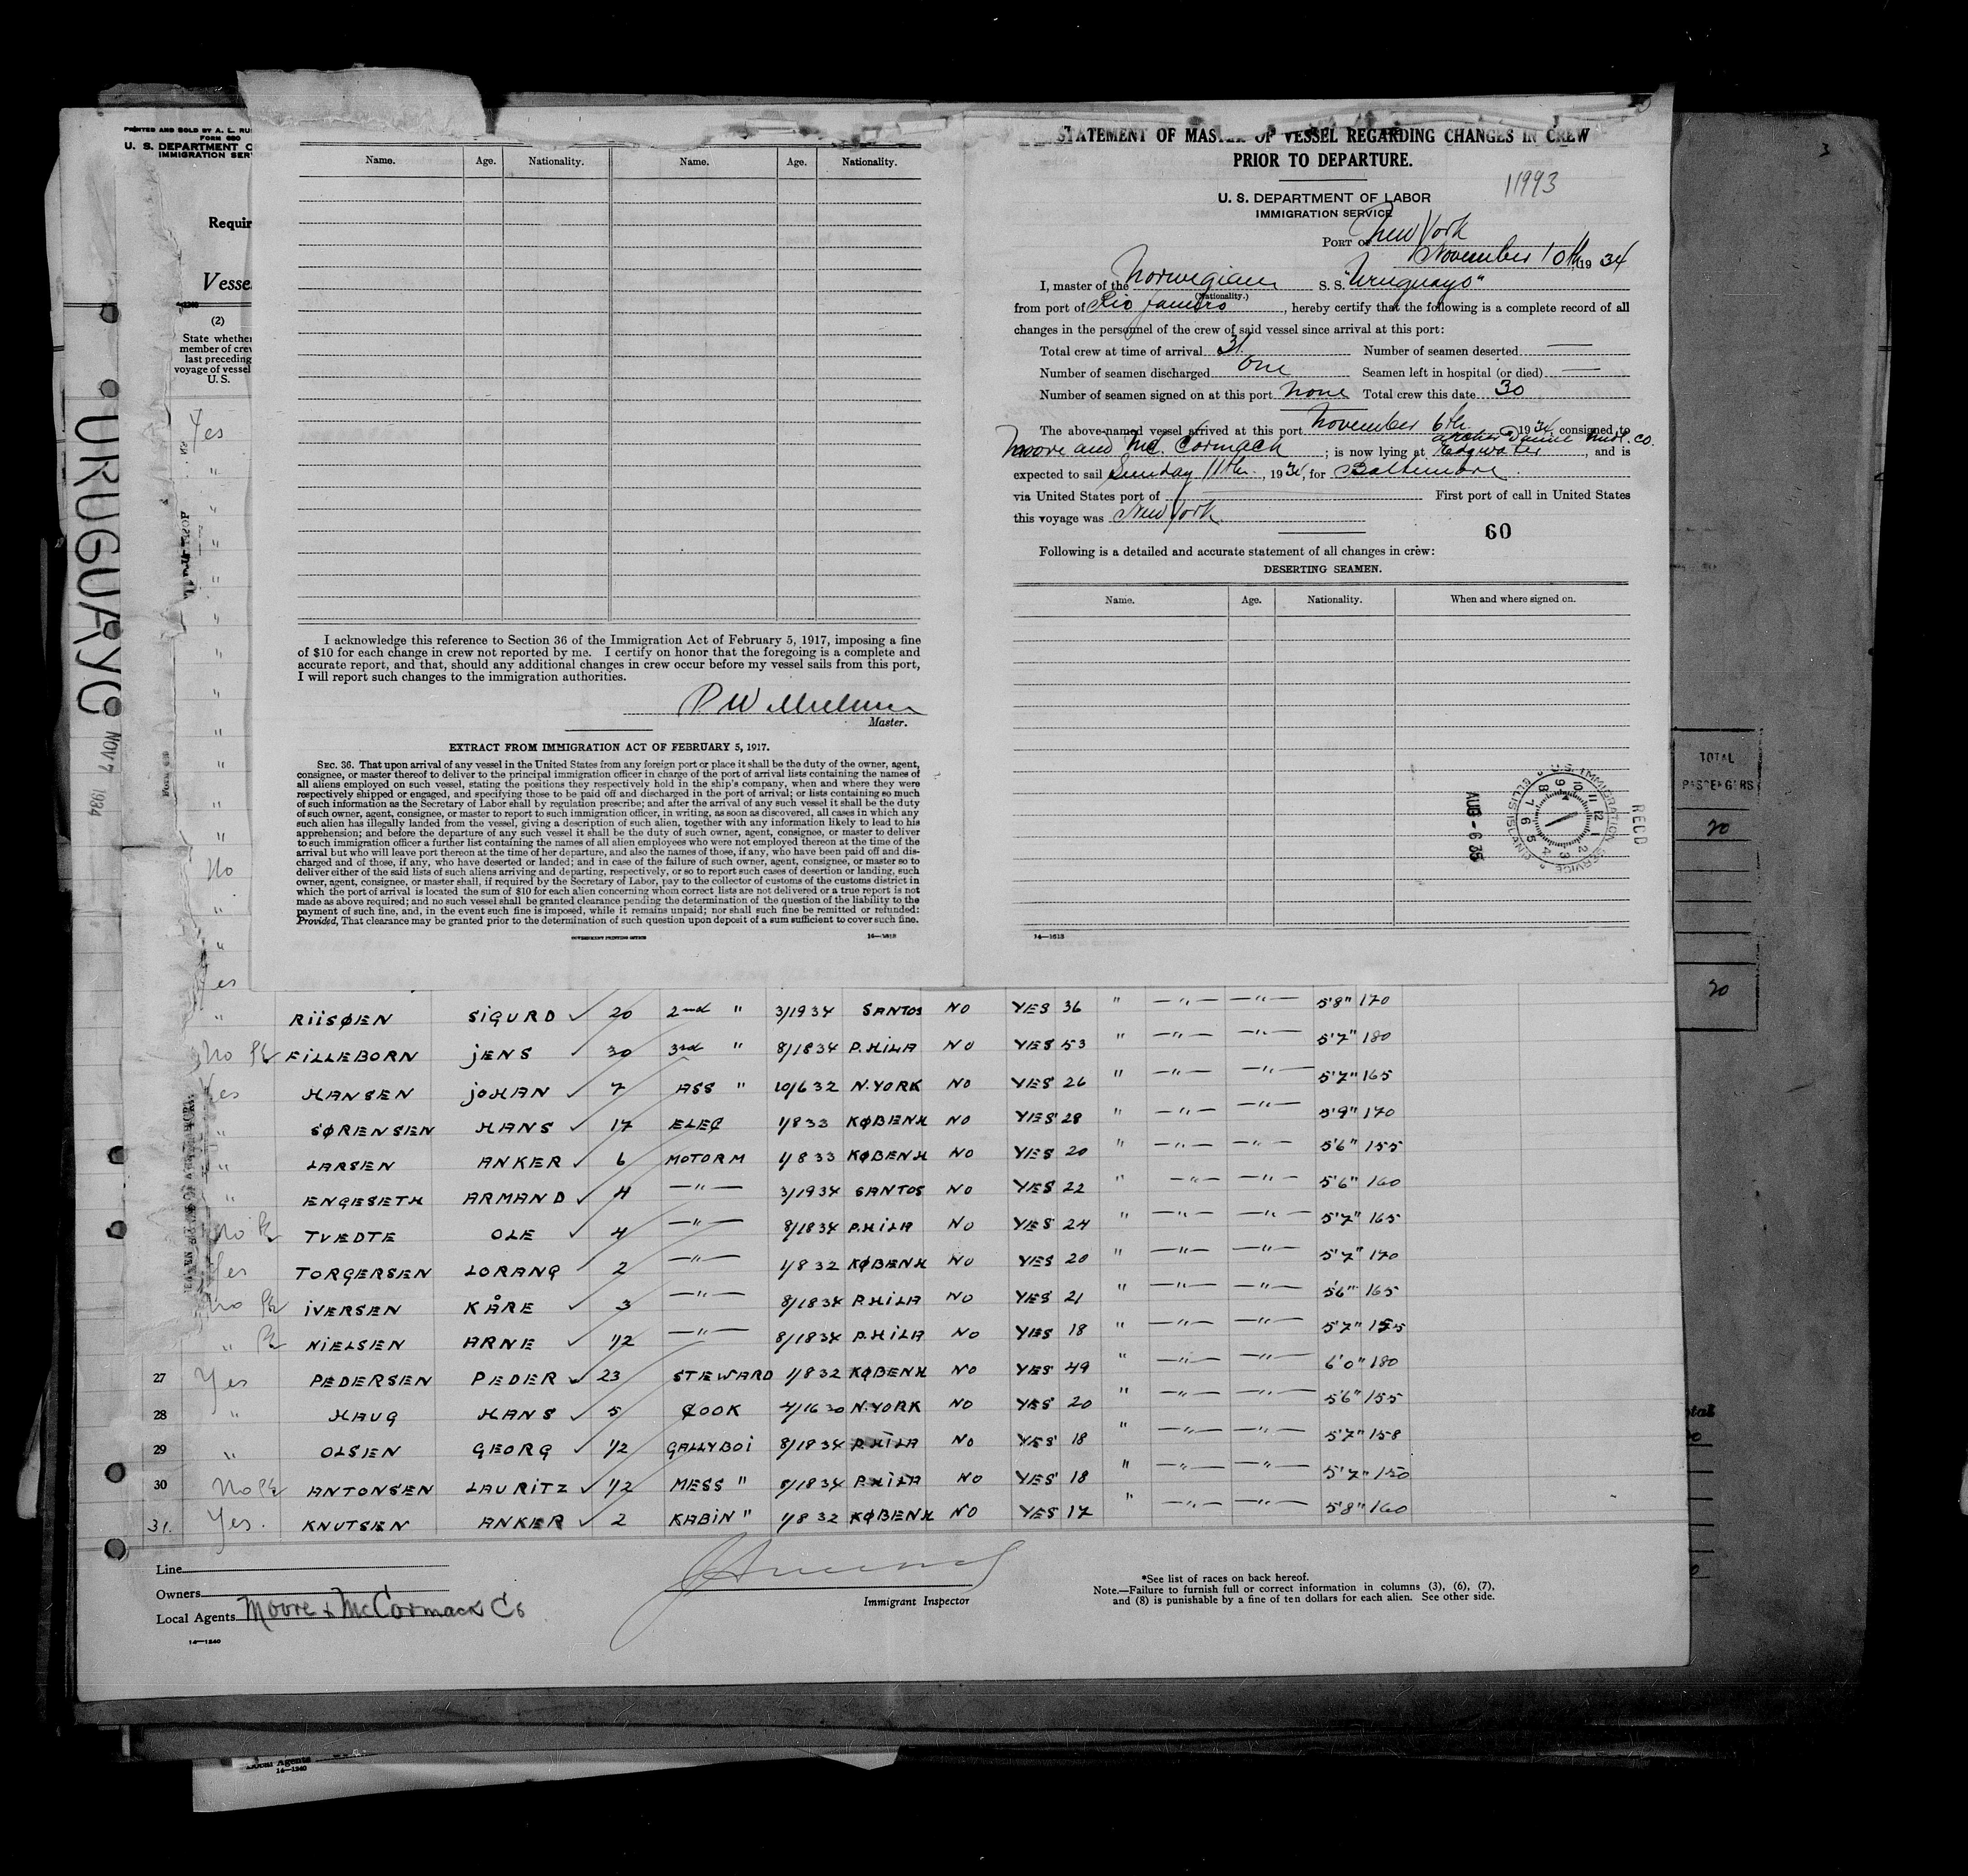 PRINTED AND SOLD BY A. L. RUS
FORM 680
U. S. DEPARTMENT O
IMMIGRATION SER
Requir
Vesse
(2)
State whether
member of crew
last preceding
voyage of vessel
U. S.
Yes
"
"
"
"
"
"
"
"
"
"
"
No
"
"
Yes
URUGUAYO NOV 7 1934
Name. Age. Nationality. Name. Age. Nationality.
I acknowledge this reference to Section 36 of the Immigration Act of February 5, 1917, imposing a fine
of $10 for each change in crew not reported by me. I certify on honor that the foregoing is a complete and
accurate report, and that, should any additional changes in crew occur before my vessel sails from this port,
I will report such changes to the immigration authorities.
Master.
EXTRACT FROM IMMIGRATION ACT OF FEBRUARY 5, 1917.
SEC. 36. That upon arrival of any vessel in the United States from any foreign port or place it shall be the duty of the owner, agent,
consignee, or master thereof to deliver to the principal immigration officer in charge of the port of arrival lists containing the names of
all aliens employed on such vessel, stating the positions they respectively hold in the ship's company, when and where they were
respectively shipped or engaged, and specifying those to be paid off and discharged in the port of arrival; or lists containing so much
of such information as the Secretary of Labor shall by regulation prescribe; and after the arrival of any such vessel it shall be the duty
of such owner, agent, consignee, or master to report to such immigration officer, in writing, as soon as discovered, all cases in which any
such alien has illegally landed from the vessel, giving a description of such alien, together with any information likely to lead to his
apprehension; and before the departure of any such vessel it shall be the duty of such owner, agent, consignee, or master to deliver
to such immigration officer a further list containing the names of all alien employees who were not employed thereon at the time of the
arrival but who will leave port thereon at the time of her departure, and also the names of those, if any, who have been paid off and dis-
charged and of those, if any, who have deserted or landed; and in case of the failure of such owner, agent, consignee, or master so to
deliver either of the said lists of such aliens arriving and departing, respectively, or so to report such cases of desertion or landing, such
owner, agent, consignee, or master shall, if required by the Secretary of Labor, pay to the collector of customs of the customs district in
which the port of arrival is located the sum of $10 for each alien concerning whom correct lists are not delivered or a true report is not
made as above required; and no such vessel shall be granted clearance pending the determination of the question of the liability to the
payment of such fine, and, in the event such fine is imposed, while it remains unpaid; nor shall such fine be remitted or refunded:
Provided, That clearance may be granted prior to the determination of such question upon deposit of a sum sufficient to cover such fine.
GOVERNMENT PRINTING OFFICE 14—1613
STATEMENT OF MASTER OF VESSEL REGARDING CHANGES IN CREW
PRIOR TO DEPARTURE.
11993
U. S. DEPARTMENT OF LABOR
IMMIGRATION SERVICE
PORT OF New York
November 10th, 1934
I, master of the Norwegian S. S. "Uruguayo"
(Nationality.)
from port of Rio Janeiro, hereby certify that the following is a complete record of all
changes in the personnel of the crew of said vessel since arrival at this port:
Total crew at time of arrival 31. Number of seamen deserted —
Number of seamen discharged one Seamen left in hospital (or died) —
Number of seamen signed on at this port none Total crew this date 30
The above-named vessel arrived at this port November 6th, 1934, consigned to
Moore and Mc. Cormack; is now lying at Edgwater, and is
expected to sail Sunday 11th, 1934, for Baltimore.
via United States port of — First port of call in United States
this voyage was New York
60
Following is a detailed and accurate statement of all changes in crew:
DESERTING SEAMEN.
Name. Age. Nationality. When and where signed on.
REC'D
U.S. IMMIGRATION SERVICE
AUG - 6 35
14—1613
TOTAL
PASSENGERS
20
20
" RIISØEN SIGURD ✓ 20 2nd " 3/19 34 SANTOS NO YES 36 " —"— —"— 5'8" 170
No FILLEBORN JENS ✓ 30 3rd " 8/18 34 P.HILA NO YES 53 " —"— —"— 5'7" 180
Yes HANSEN JOHAN ✓ 7 ASS " 10/6 32 N.YORK NO YES 26 " —"— —"— 5'7" 165
" SØRENSEN HANS ✓ 17 ELEC 1/8 33 KØBENH NO YES 28 " —"— —"— 5'9" 170
" LARSEN ANKER ✓ 6 MOTORM 1/8 33 KØBENH NO YES 20 " —"— —"— 5'6" 155
" ENGESETH ARMAND ✓ 4 —"— 3/19 34 SANTOS NO YES 22 " —"— —"— 5'6" 160
No TVEDTE OLE ✓ 4 —"— 8/18 34 P.HILA NO YES 24 " —"— —"— 5'7" 165
Yes TORGERSEN LORANG ✓ 2 —"— 1/8 32 KØBENH NO YES 20 " —"— —"— 5'7" 170
No IVERSEN KÅRE ✓ 3 —"— 8/18 34 P.HILA NO YES 21 " —"— —"— 5'6" 165
" NIELSEN ARNE ✓ 1/2 —"— 8/18 34 P.HILA NO YES 18 " —"— —"— 5'7" 155
27 Yes PEDERSEN PEDER ✓ 23 STEWARD 1/8 32 KØBENH NO YES 49 " —"— —"— 6'0" 180
28 " HAUG HANS ✓ 5 COOK 4/16 30 N.YORK NO YES 20 " —"— —"— 5'6" 155
29 " OLSEN GEORG ✓ 1/2 GALLYBOI 8/18 34 P.HILA NO YES 18 " —"— —"— 5'7" 158
30 No ANTONSEN LAURITZ ✓ 1/2 MESS " 8/18 34 P.HILA NO YES 18 " —"— —"— 5'7" 150
31. Yes. KNUTSEN ANKER ✓ 2 KABIN " 1/8 32 KØBENH NO YES 17 " —"— —"— 5'8" 160
Line
Owners
Local Agents Moore & McCormack Co
14—1240
Immigrant Inspector
*See list of races on back hereof.
Note.—Failure to furnish full or correct information in columns (3), (6), (7),
and (8) is punishable by a fine of ten dollars for each alien. See other side.
Local Agents
14—1240